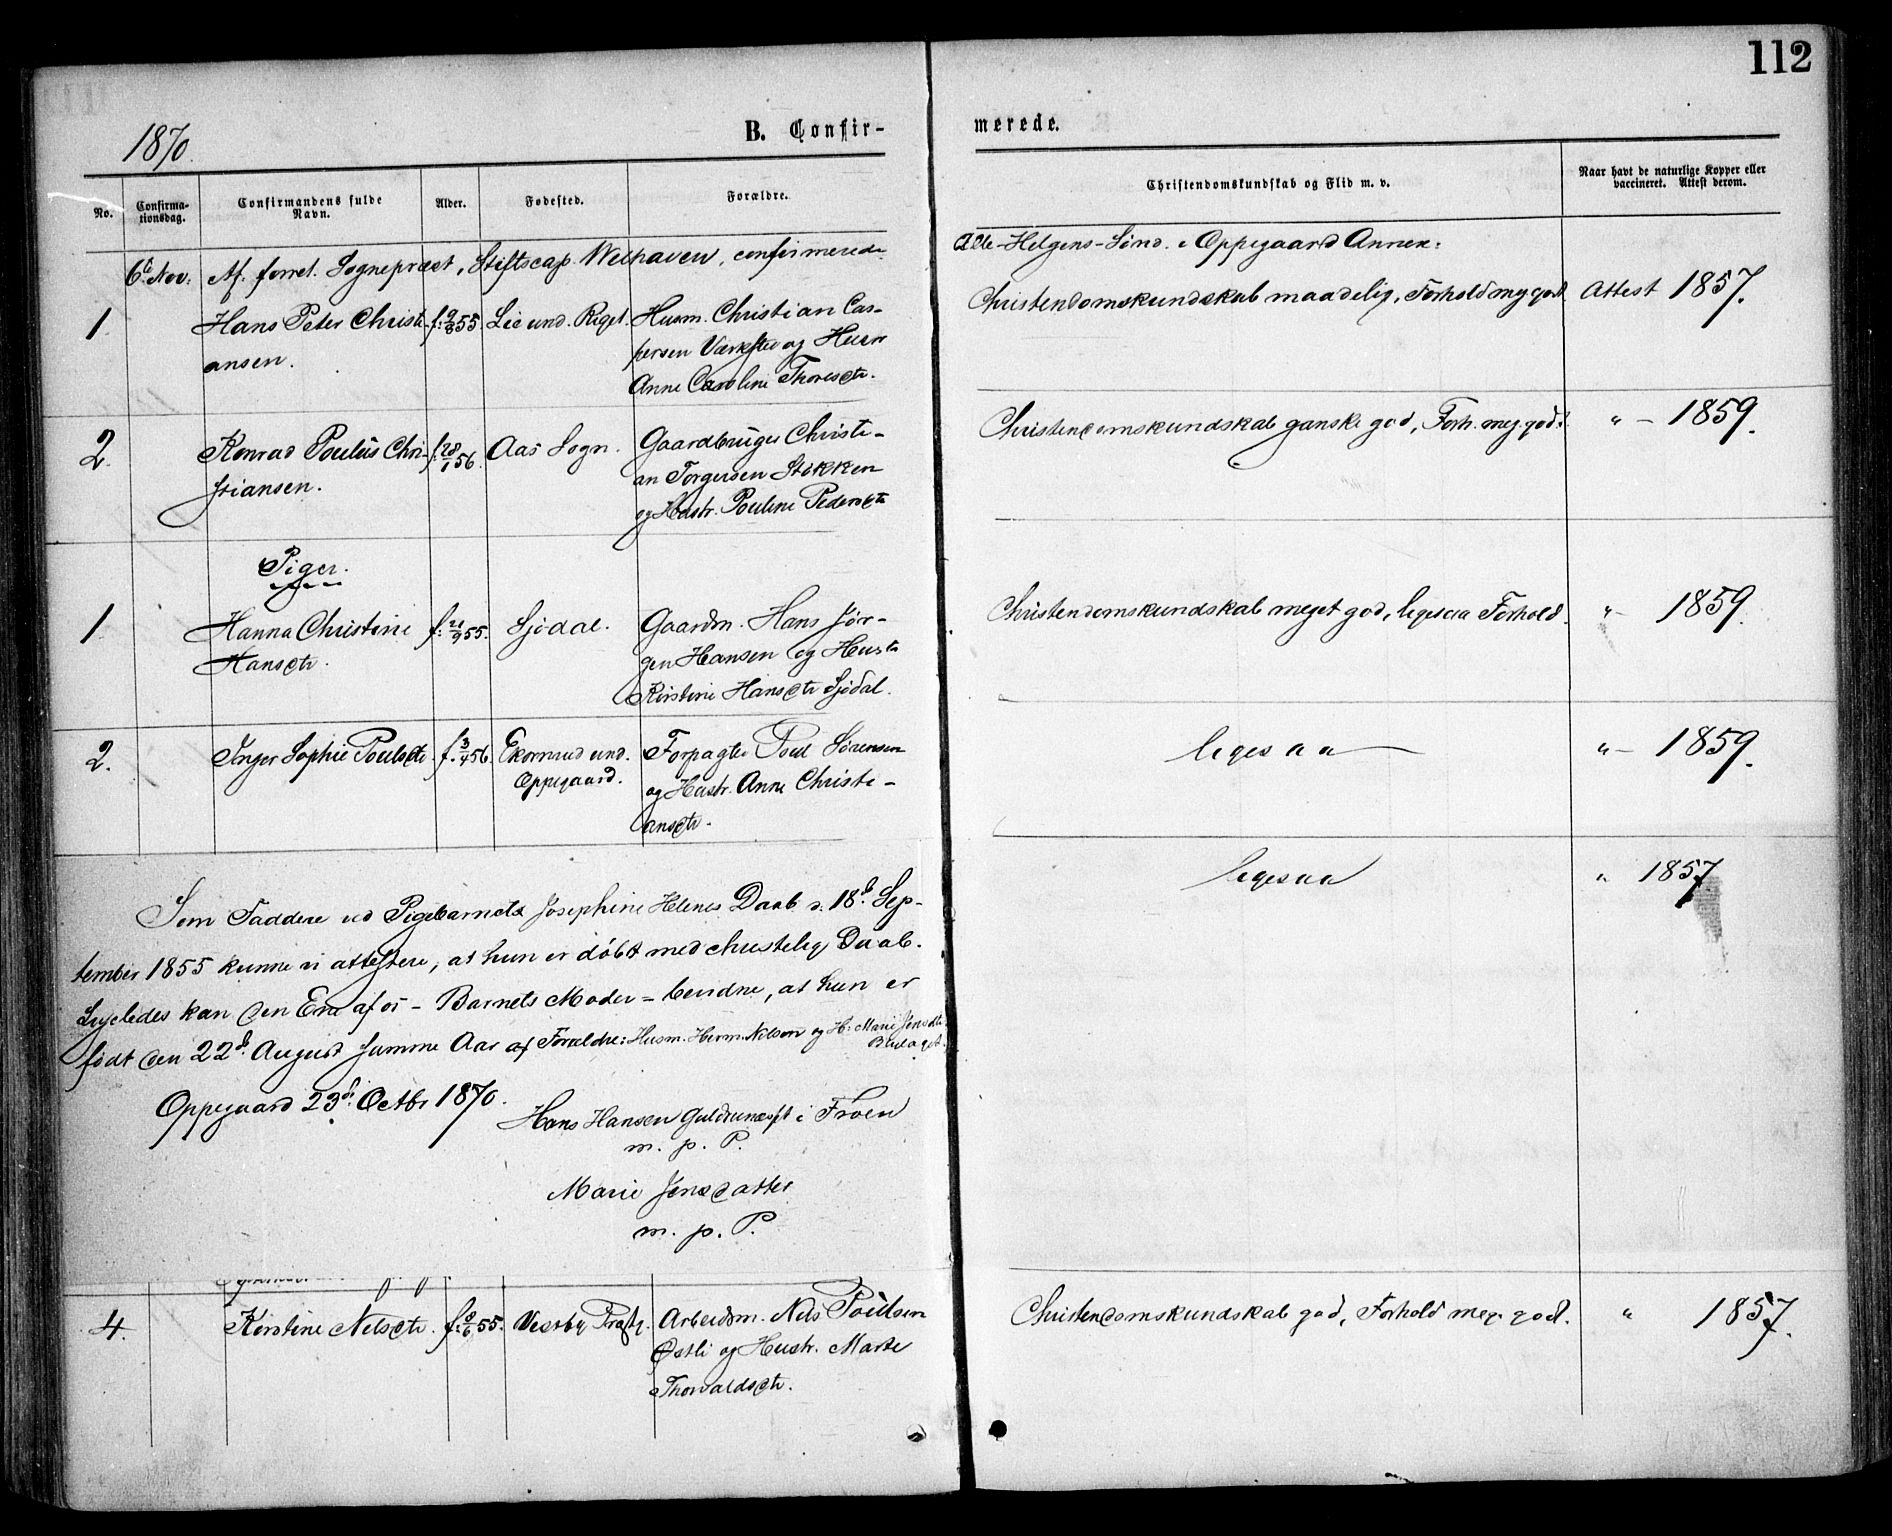 112
1870.
B. Confir-
merede.
No.
Confirma-
tionsdag.
Confirmandens fulde
Navn.
Alder.
Fødested.
Forældre.
Christendomskundskab og Flid m. v.
Naar havt de naturlige Kopper eller
vaccineret. Attest derom.
6te Nov: Af forret. Sognepræst, Stiftscap. Welhaven, confirmerede
Alle-Helgens-Sønd. i Oppegaard Annex:
1. Hans Peter Christi- f: 9/8 55. Lie und. Riget. Husm. Christian Cas-
Christendomskundskab maadelig, Forhold meg. godt Attest 1857.
ansen. persen Værksted og Hustr
Anne Caroline Thoresdtr.
2. Konrad Poulus Chri- f: 28/1 56. Aas Sogn. Gaardbruger Christi-
Christendomskundskab ganske god, Forh. meg. godt. " - 1859.
stiansen. an Torgersen Stokken
og Hustr. Pouline Pedersdtr
Piger.
1. Hanna Christine f: 21/9 55. Sjødal. Gaardm. Hans Jør-
Christendomskundskab meget god, ligesaa Forhold. " - 1859.
Hansdtr. gen Hansen og Hustr
Kirstine Hansdtr Sjødal.
2. Inger Sophie Poulsdtr f. 3/4 56. Ekornrud und. Forpagter Poul Sørensen
ligesaa " - 1859.
Oppegaard. og Hustr. Anne Christi-
ansdtr.
ligesaa " 1857.
Som Faddere ved Pigebarnets Josephine Helenes Daab d. 18d. Sep-
tember 1855 kunne vi attestere, at hun er døbt med christelig Daab.
Ligeledes kan den Ene af os - Barnets Moder - bevidne, at hun er
født den 22d. August samme Aar af Forældre: Husm. Herm. Nilsen og H: Marie Jensdtr
Oppegaard 23d. Octbr 1870.
Hans Hansen i Froen
m. p. P.
Marie Jensdatter
m. p. P.
4. Kirstine Nelsdtr. f: 8/6 55. Vestby Præstg. Arbeidsm. Nels Poulsen
Christendomskundskab god, Forhold meg. godt. " 1857.
Østli og Hustr. Marte
Thorvaldsdtr.